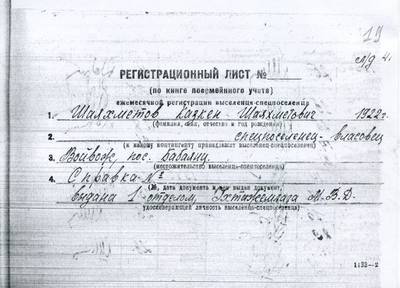 19
л/д 4.
РЕГИСТРАЦИОННЫЙ ЛИСТ №
(по книге посемейного учета)
ежемесячной регистрации выселенца-спецпоселенца
1. Шаяхметов Казкен Шаяхметович 1922 г.
(фамилия, имя, отчество и год рождения)
2. спецпоселенец-власовец
(к какому контингенту принадлежит выселенец-спецпоселенец)
3. Войвож, пос.
(местожительство выселенца-спецпоселенца)
4. Справка №
(№, дата документа и кем выдан документ,
выдана 1 отделом, Ухтижемлага М.В.Д.
удостоверяющий личность выселенца-спецпоселенца)
1133—2